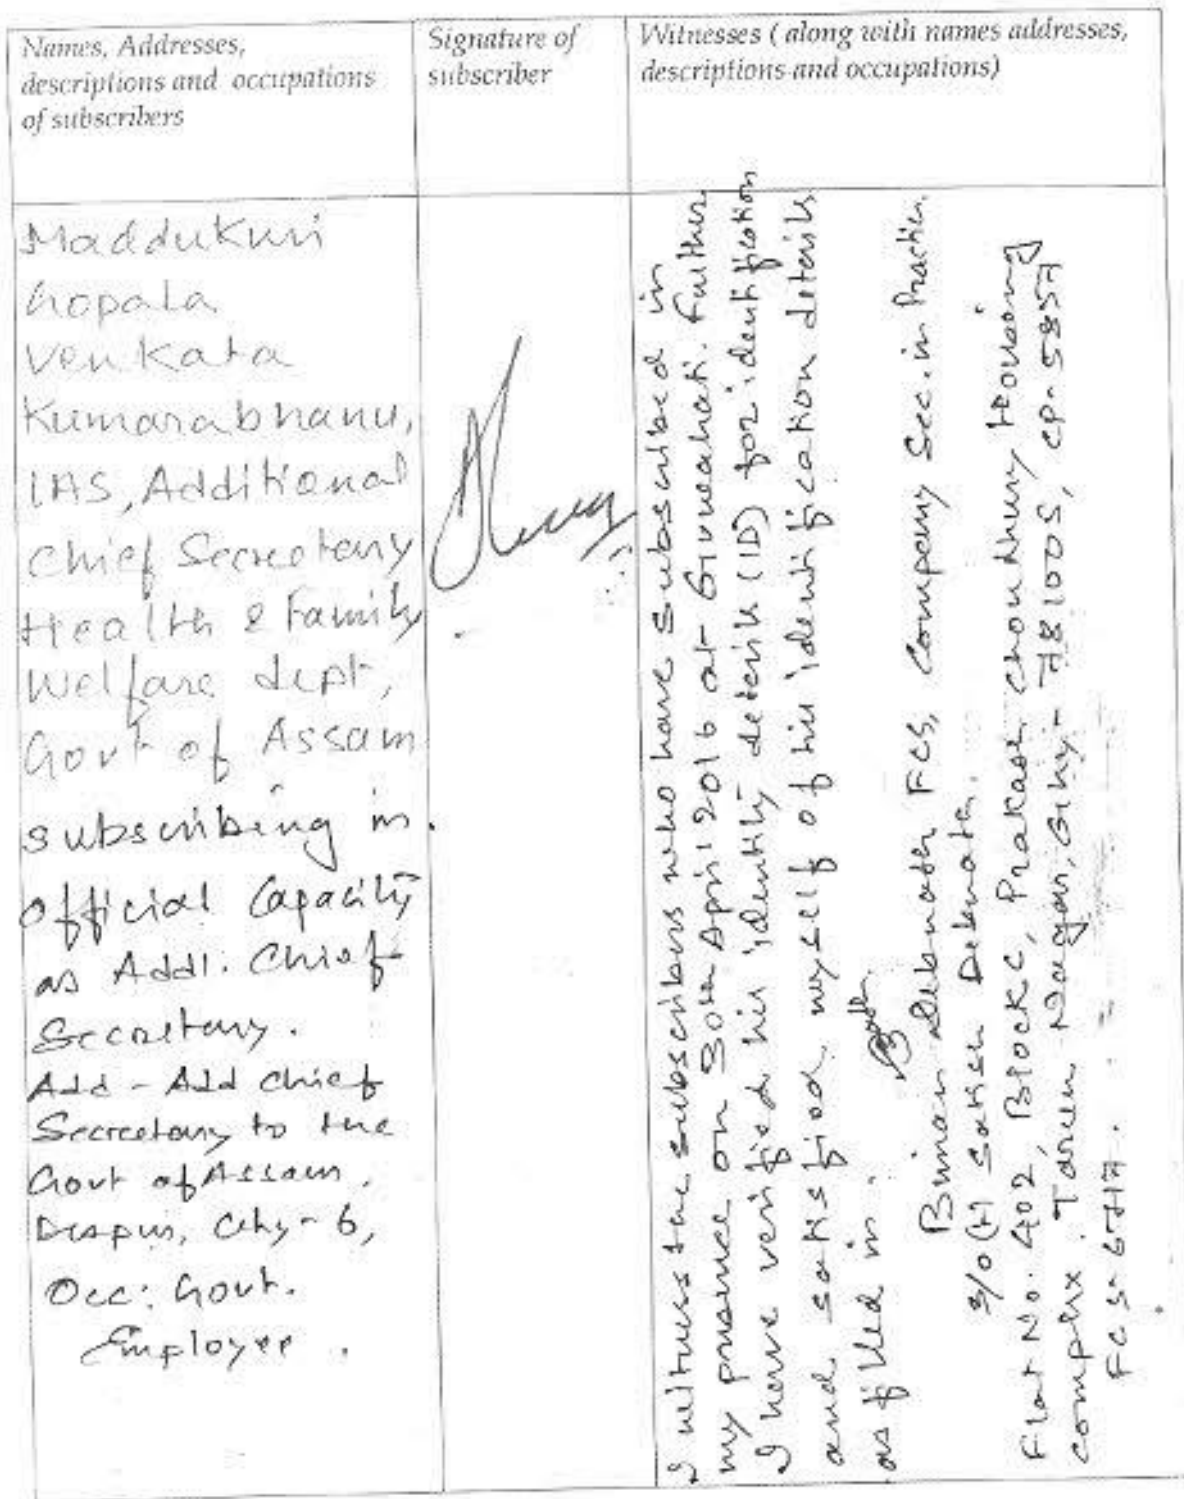 Names, Addresses,
descriptions and occupations
of subscribers
Signature of
subscriber
Witnesses ( along with names addresses,
descriptions and occupations)
Maddukuri
Gopala
Venkata
Kumarabhanu,
IAS, Additional
Chief Secretary
Health & Family
Welfare dept,
Govt of Assam
subscribing in
Official Capacity
as Addl. Chief
Secretary.
Add - Add Chief
Secretary to the
Govt of Assam,
Dispur, Ghy- 6,
Occ: Govt.
Employee.
I witness the subscribers who have subscribed in
my presence on 30th April 2016 at Guwahati. Further
I have verified his identity details (ID) for identification
and satisfied myself of his identification details
as filled in.
Biman Debnath FCS, Company Sec. in Practice,
S/o (L) Satish Debnath.
Flat No. 402, Block C, Prakash Choudhury Housing
complex. Tarun Nagar, Ghy- 781005, CP-5857
FCS-6717.